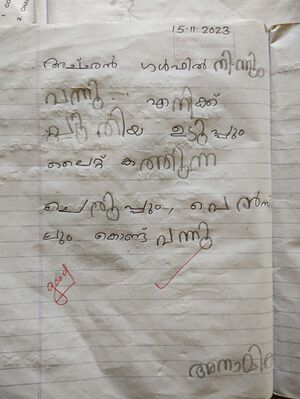 15-11-2023
അച്ഛൻ ഗൾഫിൽ നിന്നും
വന്നു. എനിക്ക്
പുതിയ ഉടുപ്പും
ലൈറ്റ് കത്തുന്ന
ചെരുപ്പും, പെൻസി
ലും കൊണ്ട് വന്നു
good
അനാമിക